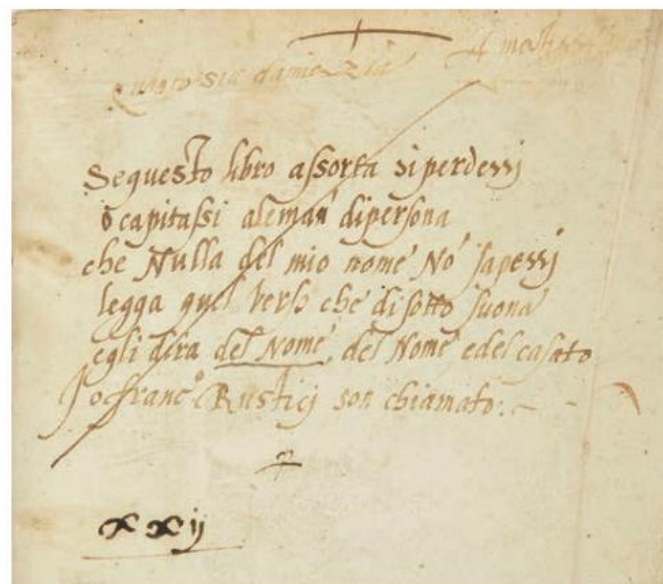 Questo sia
Se questo libro assorta si perdessj
o capitassi aleman dipersona
che Nulla del mio nome No sapessj
legga quel verso che disotto suona
egli dira del Nome, del Nome edel casato
Jo franc.o Rusticj son chiamato:-
xxij